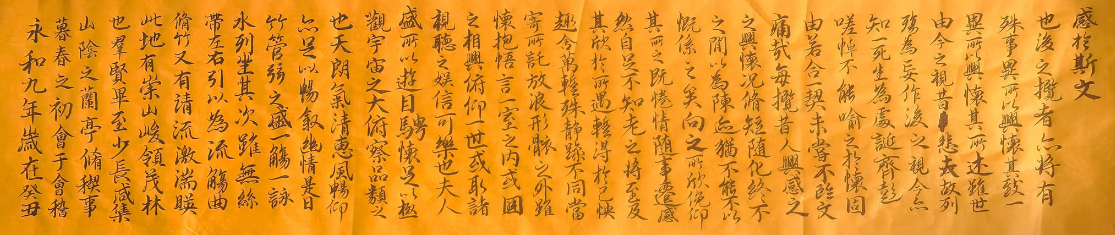 永和九年歲在癸丑
暮春之初會于會稽
山陰之蘭亭脩稧事
也羣賢畢至少長咸集
此地有崇山峻領茂林
脩竹又有清流激湍暎
帶左右引以為流觴曲
水列坐其次雖無絲
竹管弦之盛一觴一詠
亦足以暢敘幽情是日
也天朗氣清惠風暢仰
觀宇宙之大俯察品類之
盛所以遊目騁懷足以極
視聽之娛信可樂也夫人
之相與俯仰一世或取諸
懷抱悟言一室之內或因
寄所託放浪形骸之外雖
趣舍萬殊靜躁不同當
其欣於所遇蹔得於己怏
然自足不知老之將至及
其所之既惓情隨事遷感
慨係之矣向之所欣俛仰
之間以為陳迹猶不能不以
之興懷況脩短隨化終不
痛哉每攬昔人興感之
由若合契未嘗不臨文
嗟悼不能喻之於懷固
知一死生為虛誕齊彭
殤為妄作後之視今亦
由今之視昔悲夫故列
異所興懷其所述雖世
殊事異所以興懷其致一
也後之攬者亦將有
感於斯文